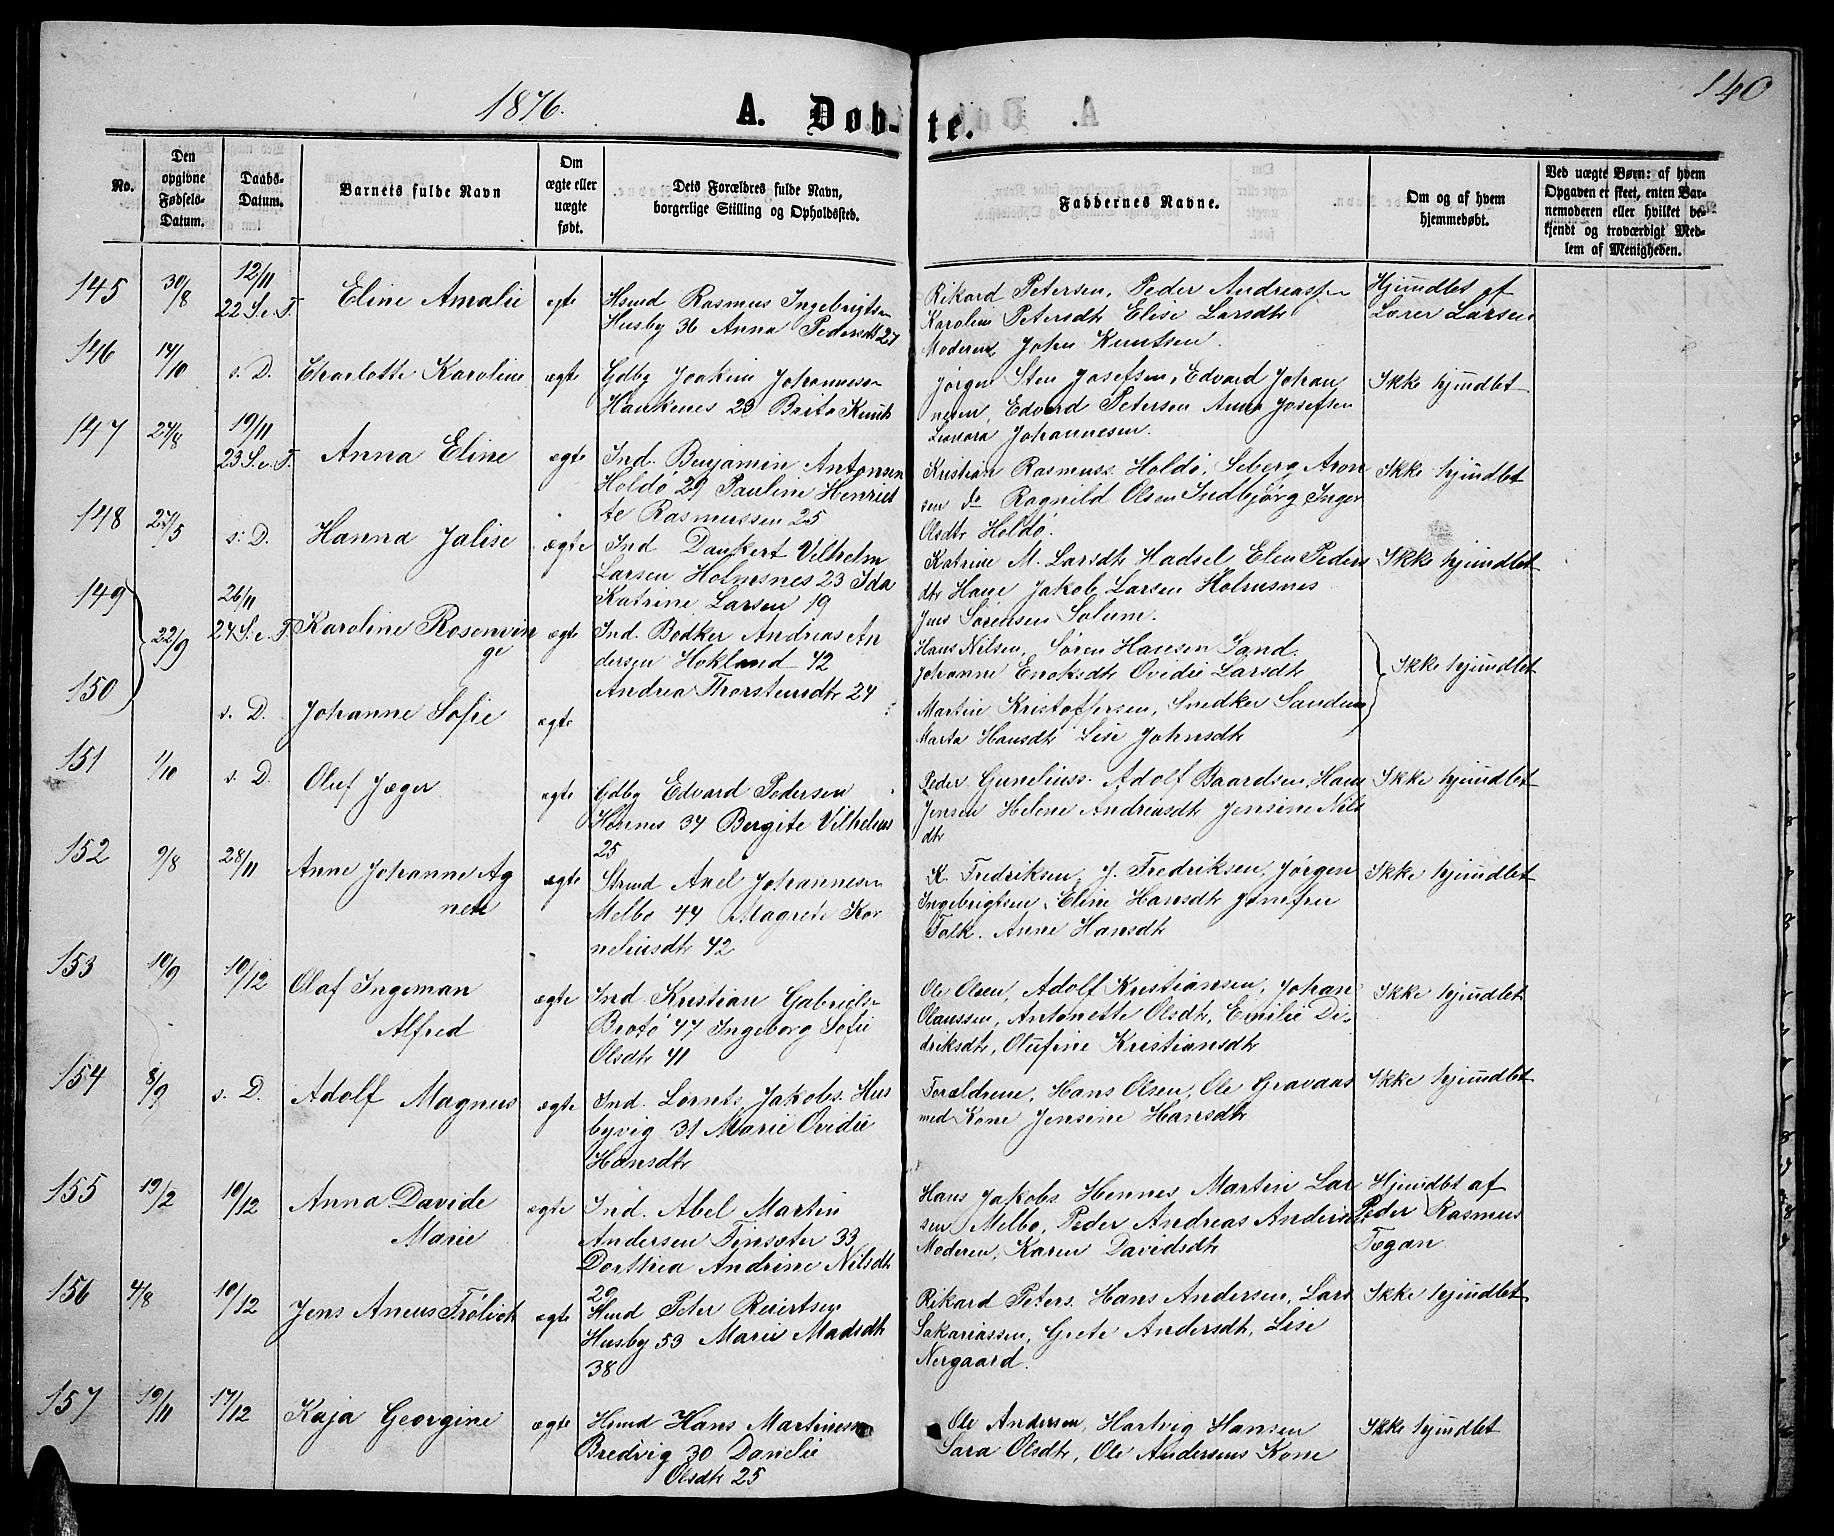 140
1876.
A. Døb-te.
No.
Den opgivne Fødsels-Datum.
Daabs-Datum.
Barnets fulde Navn
Om ægte eller uægte født.
Dets Forældres fulde Navn, borgerlige Stilling og Opholdssted.
Faddernes Navne.
Om og af hvem hjemmedøbt.
Ved uægte Børn: af hvem Opgaven er skeet, enten Barnemoderen eller hvilket bekjendt og troværdigt Medlem af Menigheden.
145 30/8 12/11 22 S. e. T. Eline Amalie egte Hsmd Rasmus Ingebrigtsn
Husby 36 Anna Pedersdtr 27
Rikard Petersen, Peder Andreassen
Karoline Petersdtr Elise Larsdtr
Moderen, John Knutsen.
Hjmdbt af
Lærer Larsen
146 14/10 s. D. Charlotte Karoline ægte Gdby Joakim Johannesen
Haukenes 23 Berita Knuts
Jørgen Sten Josefsen, Edvard Johan
nesen, Edvard Petersen Anna Josefsen
Leonora Johannesen.
Ikke hjmdbt
147 24/8 19/11 23 S. e. T. Anna Eline ægte Ind. Benjamin Antonsen
Holdø 29 Pauline Henriet
te Rasmussen 25
Kristian Rasmuss. Holdø, Seberg Aron
sen do Ragnild Olsen Indbjørg Inger
Olsdtr Holdø.
Ikke hjmdbt
148 27/5 s. D. Hanna Jalise ægte Ind Dankert Vilhelm
Larsen Holmsnes 23 Ida
Katrine Larsen 19
Katrine M. Larsdtr Hadsel, Elen Peders
dtr Hane Jakob Larsen Holmsnes
Jens Sørensen Solum.
Ikke hjmdbt
149 22/9 26/11 24 S. e. T. Karoline Rosenvin
ge
ægte Ind. Bødker Andreas An
dersen Hokland 42
Andrea Thorstensdtr 24
Hans Nilsen, Søren Hansen Sand.
Johanne Enoksdtr Ovidie Larsdtr
Ikke hjmdbt
150 s. D. Johanne Sofie ægte
Martin Kristoffersen, Snedker Sandum
Marta Hansdtr Lise Johnsdtr
151 1/10 s. D. Oluf Jæger ægte Gdby Edvard Pedersen
Hennes 34 Bergete Vilhelms
25
Peder Guneliuss. Adolf Baardsen, Hans
Jensen Helene Andreasdtr Jensine Nils
dtr
Ikke hjmdbt
152 9/8 28/11 Anne Johanne Ag
nete
ægte Strmd Axel Johannesen
Melbo 44 Magrete Kor
neliusdtr 42
K. Fredriksen, J. Fredriksen, Jørgen
Ingebrigtsen, Eline Hansdtr Jomfru
Falk. Anne Hansdtr
Ikke hjmdbt
153 10/9 10/12 Olaf Ingeman
Alfred
ægte Ind. Kristian Gabriels.
Brotø 47 Ingeborg Sofie
Olsdtr 41
Ole Olsen, Adolf Kristiansen, Johan
Olaussen, Antonette Olsdtr, Emilie Di-
driksdtr, Olufine Kristiansdtr
Ikke hjmdbt
154 8/9 s. D. Adolf Magnus ægte Ind. Lornts Jakobs. Hus
byvig 31 Marie Ovidie
Hansdtr
Forældrene, Hans Olsen, Ole Gravaas
med Kone Jensine Hansdtr
Ikke hjmdbt
155 19/2 10/12 Anna Davide
Marie
ægte Ind. Abel Martin
Andersen Finsæter 33
Dorthea Andrine Nilsdtr
29
Hans Jakobs. Hennes Martin Lar
sen Melbo, Peder Andreas Andersen
Moderen, Karen Davidsdtr
Hjmdbt af
Peder Rasmus
Tøgan.
156 4/8 10/12 Jens Aneus Frølich ægte Hmd Peter Reiertsen
Husby 53 Marie Madsdtr
38
Rikard Peters. Hans Andersen, Lars
Sakariassen, Grete Andersdtr, Lise
Nergaard.
Ikke hjmdbt
157 19/11 17/12 Kaja Georgine ægte Hsmd Hans Martinesen
Bredvig 30 Danelie
Olsdtr 25
Ole Andersen, Hartvig Hansen
Sara Olsdtr, Ole Andersens Kone
Ikke hjmdbt